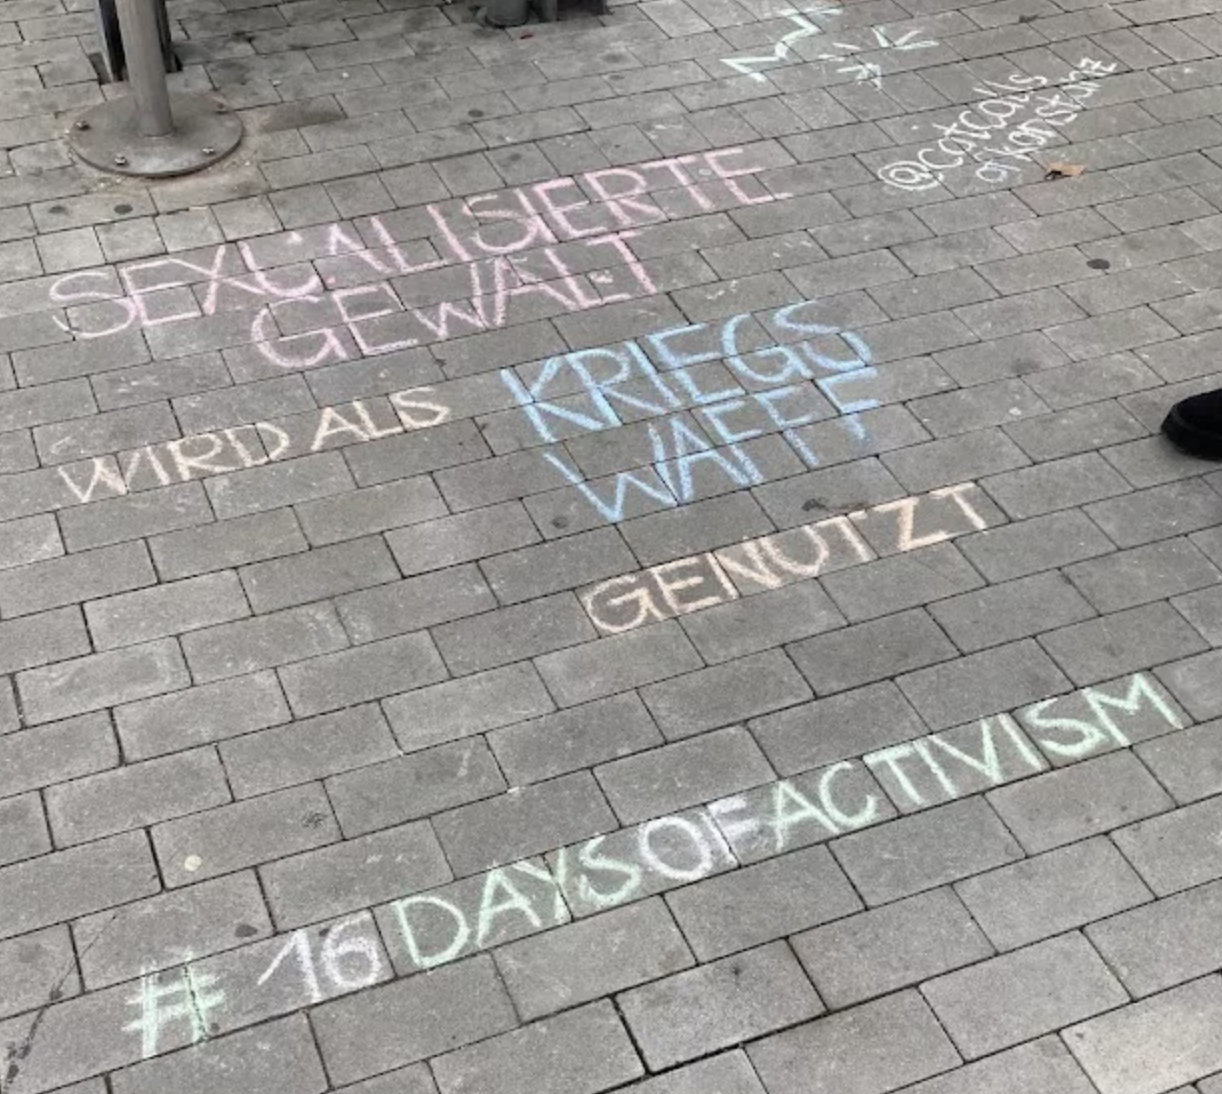 @catcalls
ofkonstanz
SEXUALISIERTE
GEWALT
WIRD ALS
KRIEGS
WAFFE
GENUTZT
#16DAYSOFACTIVISM